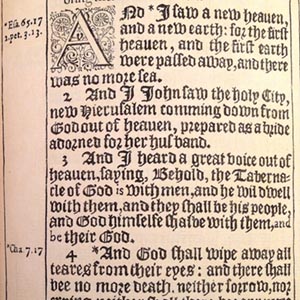 AND *I saw a new heauen,
and a new earth: for the first
heauen, and the first earth
were passed away, and there
was no more sea.
2 And I John saw the holy City,
new Hierusalem comming down from
God out of heauen, prepared as a bride
adorned for her husband.
3 And I heard a great voice out of
heauen, saying, Behold, the Taberna-
cle of God is with men, and he wil dwell
with them, and they shall be his people,
and God himselfe shalbe with them, and
be their God.
4 *And God shall wipe away all
teares from their eyes: and there shall
bee no more death, neither sorrow, nor
*Esa. 65.17
2. pet. 3.13.
*Cha 7.17